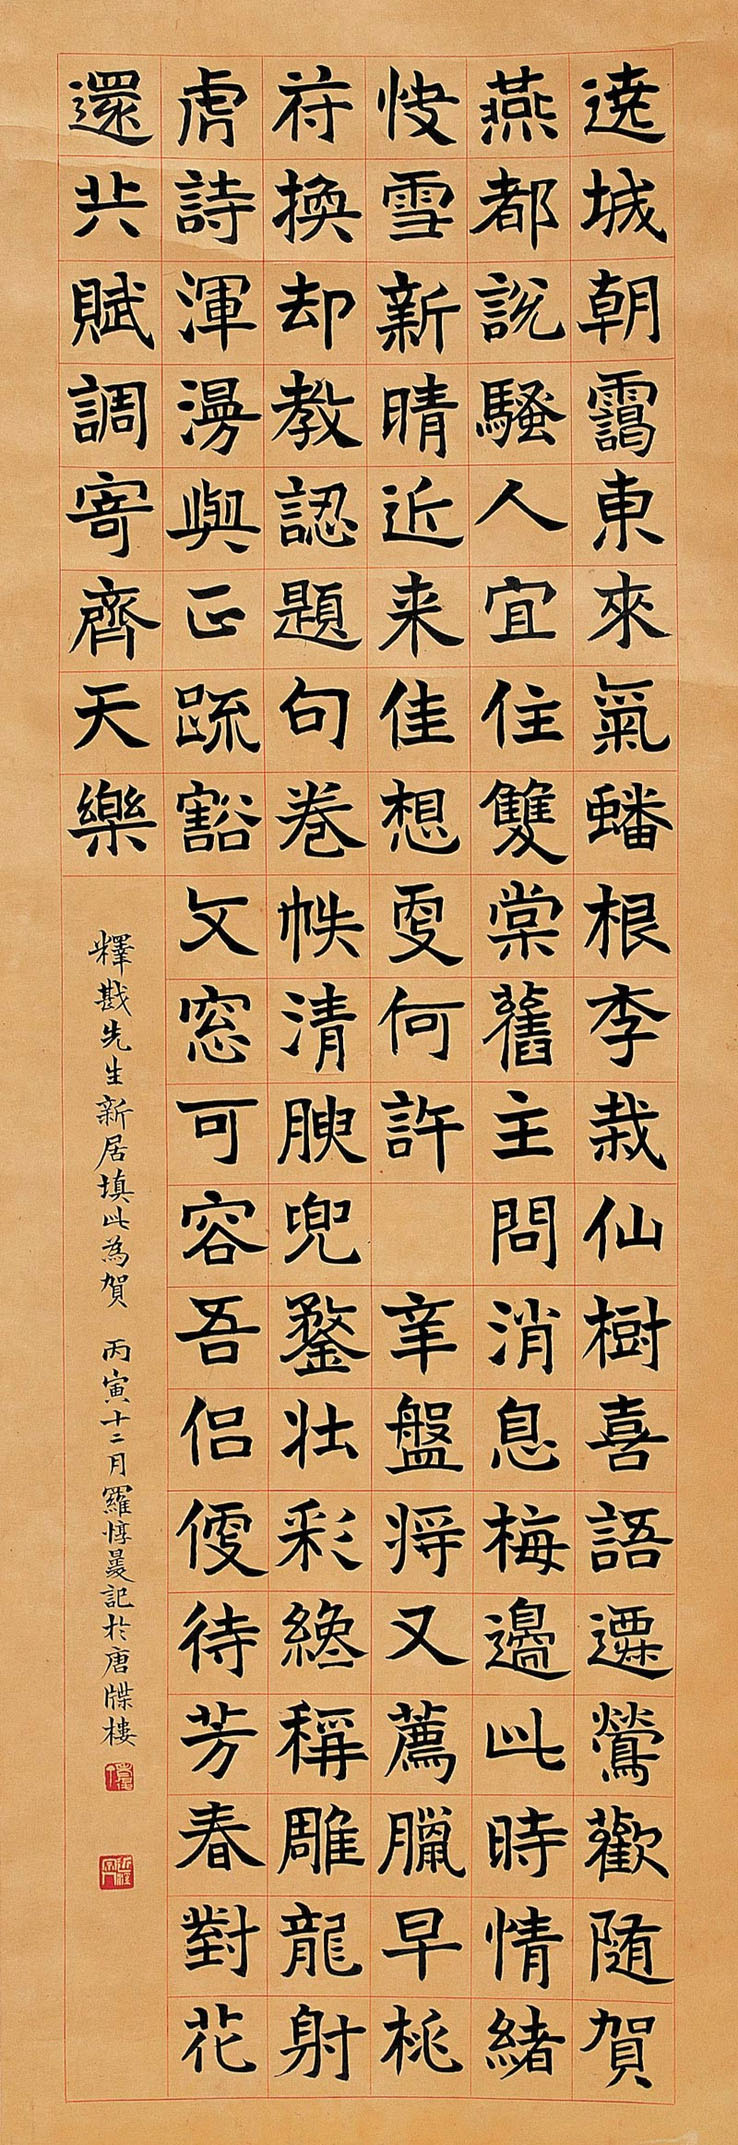 遶城朝靄東來氣蟠根李栽仙樹喜語遷鶯歡随賀
燕都說騷人宜住雙棠舊主問消息梅邊此時情緒
快雪新晴近来佳想更何許 辛盤将又薦臘早桃
符換却教認題句卷帙清腴兜鍪壮彩總稱雕龍射
虎詩渾漫與正疏豁文窓可容吾侣便待芳春對花
還共賦調寄齊天樂
釋戡先生新居填此為賀 丙寅十二月羅惇㬊記於唐牒樓